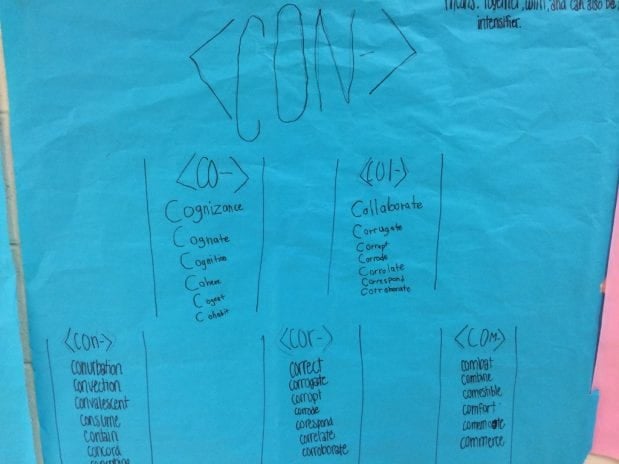 means: together, with, and can also be
intensifier.
<CON->
<CO->
Cognizance
Cognate
Cognition
Cohere
Cogent
Cohabit
<COl->
Collaborate
Corrugate
Corrupt
Corrode
Correlate
Correspond
Corroborate
<con->
conurbation
convection
convalescent
consume
contain
concord
<cor->
correct
corrugate
corrupt
corrode
corespond
correlate
corroborate
<COM->
combat
combine
comestible
comfort
commerce